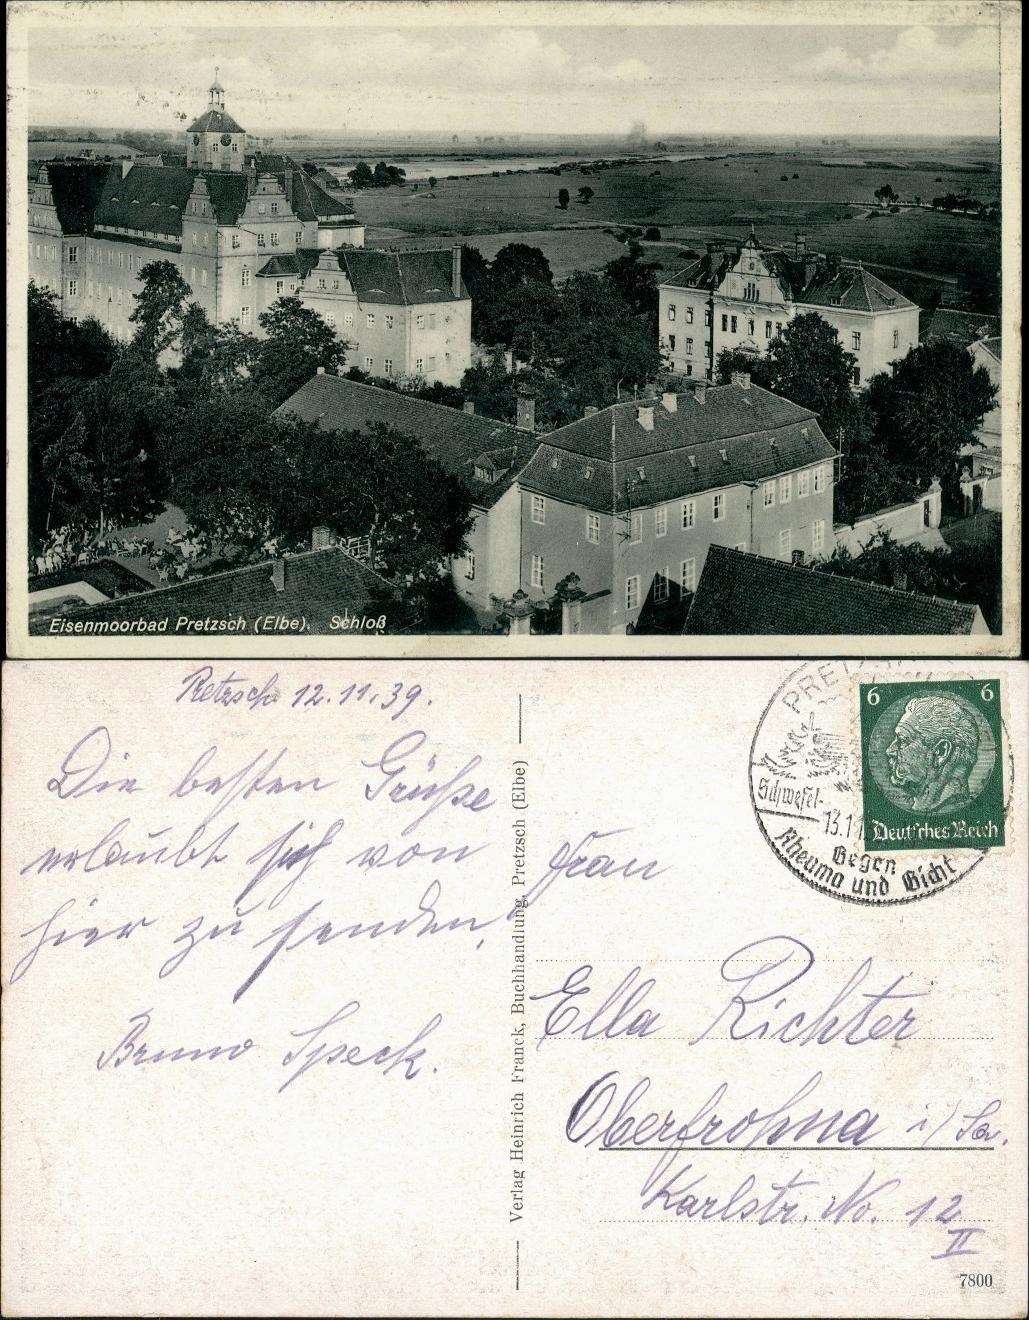 Eisenmoorbad Pretzsch (Elbe). Schloß
Pretzsch 12.11.39.
Die besten Grüße
erlaubt sich von
hier zu senden,
Bruno Speck.
Verlag Heinrich Franck, Buchhandlung, Pretzsch (Elbe)
6 6
Deutsches Reich
Schwefel-
13.1
Gegen
Rheuma und Gicht
Frau
Ella Richter
Oberfrohna i/Sa.
Karlstr. No. 12
II
7800